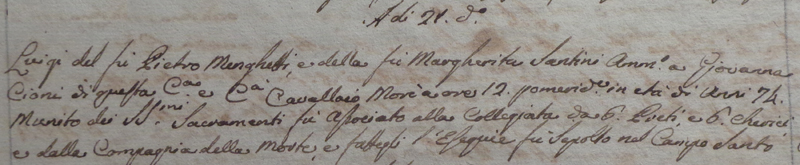 A di 21. d.º
Luigi del fù Pietro Menghetti, e della fù Margherita Santini Amm.º a Giovanna
Cioni di questa C.a e C.a Cavallaio, Morì a ore 12. pomerid.e in età di Anni 74.
Munito dei SS.ini Sacramenti fù Associato alla Collegiata da 6. Preti, e 6. Cherici
e dalla Compagnia della Morte, e fattegli l'Esequie fù Sepolto nel Campo Santo